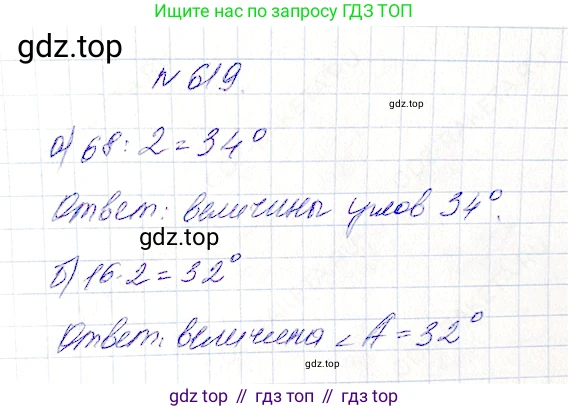 Ищите нас по запросу ГДЗ ТОП
gdz.top
N 619.
gdz.top
а) 68 : 2 = 34°
Ответ: величины углов 34°.
gdz.top
б) 16 · 2 = 32°
Ответ: величина ∠ A = 32°
gdz.top
gdz.top // gdz.top // gdz.top